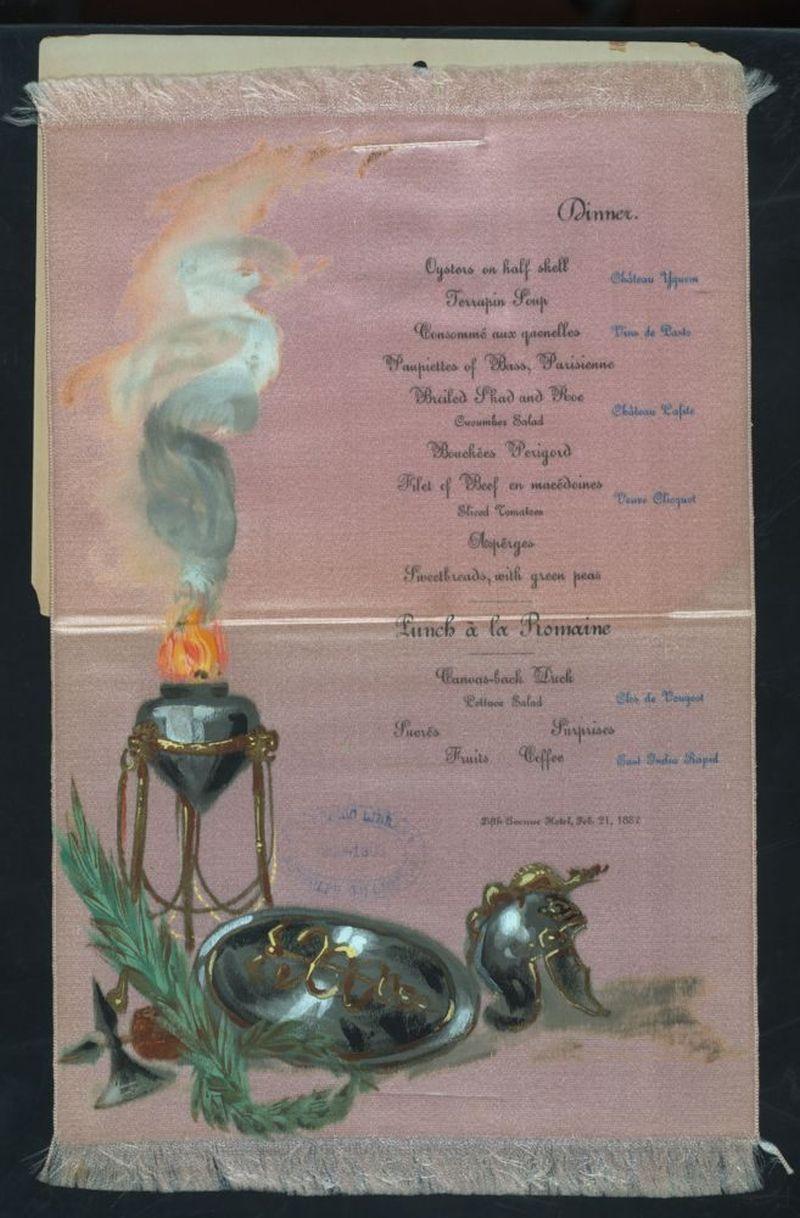 Dinner.
Oysters on half shell
Château Yquem
Terrapin Soup
Consommé aux quenelles
Vins de Pasto
Paupiettes of Bass, Parisienne
Broiled Shad and Roe
Château Lafite
Cucumber Salad
Bouchées Perigord
Filet of Beef en macédoines
Veuve Clicquot
Sliced Tomatoes
Asperges
Sweetbreads, with green peas
Punch à la Romaine
Canvas-back Duck
Lettuce Salad
Clos de Vougeot
Sucrés Surprises
Fruits Coffee
East India Rapid
Fifth Avenue Hotel, Feb. 21, 1887